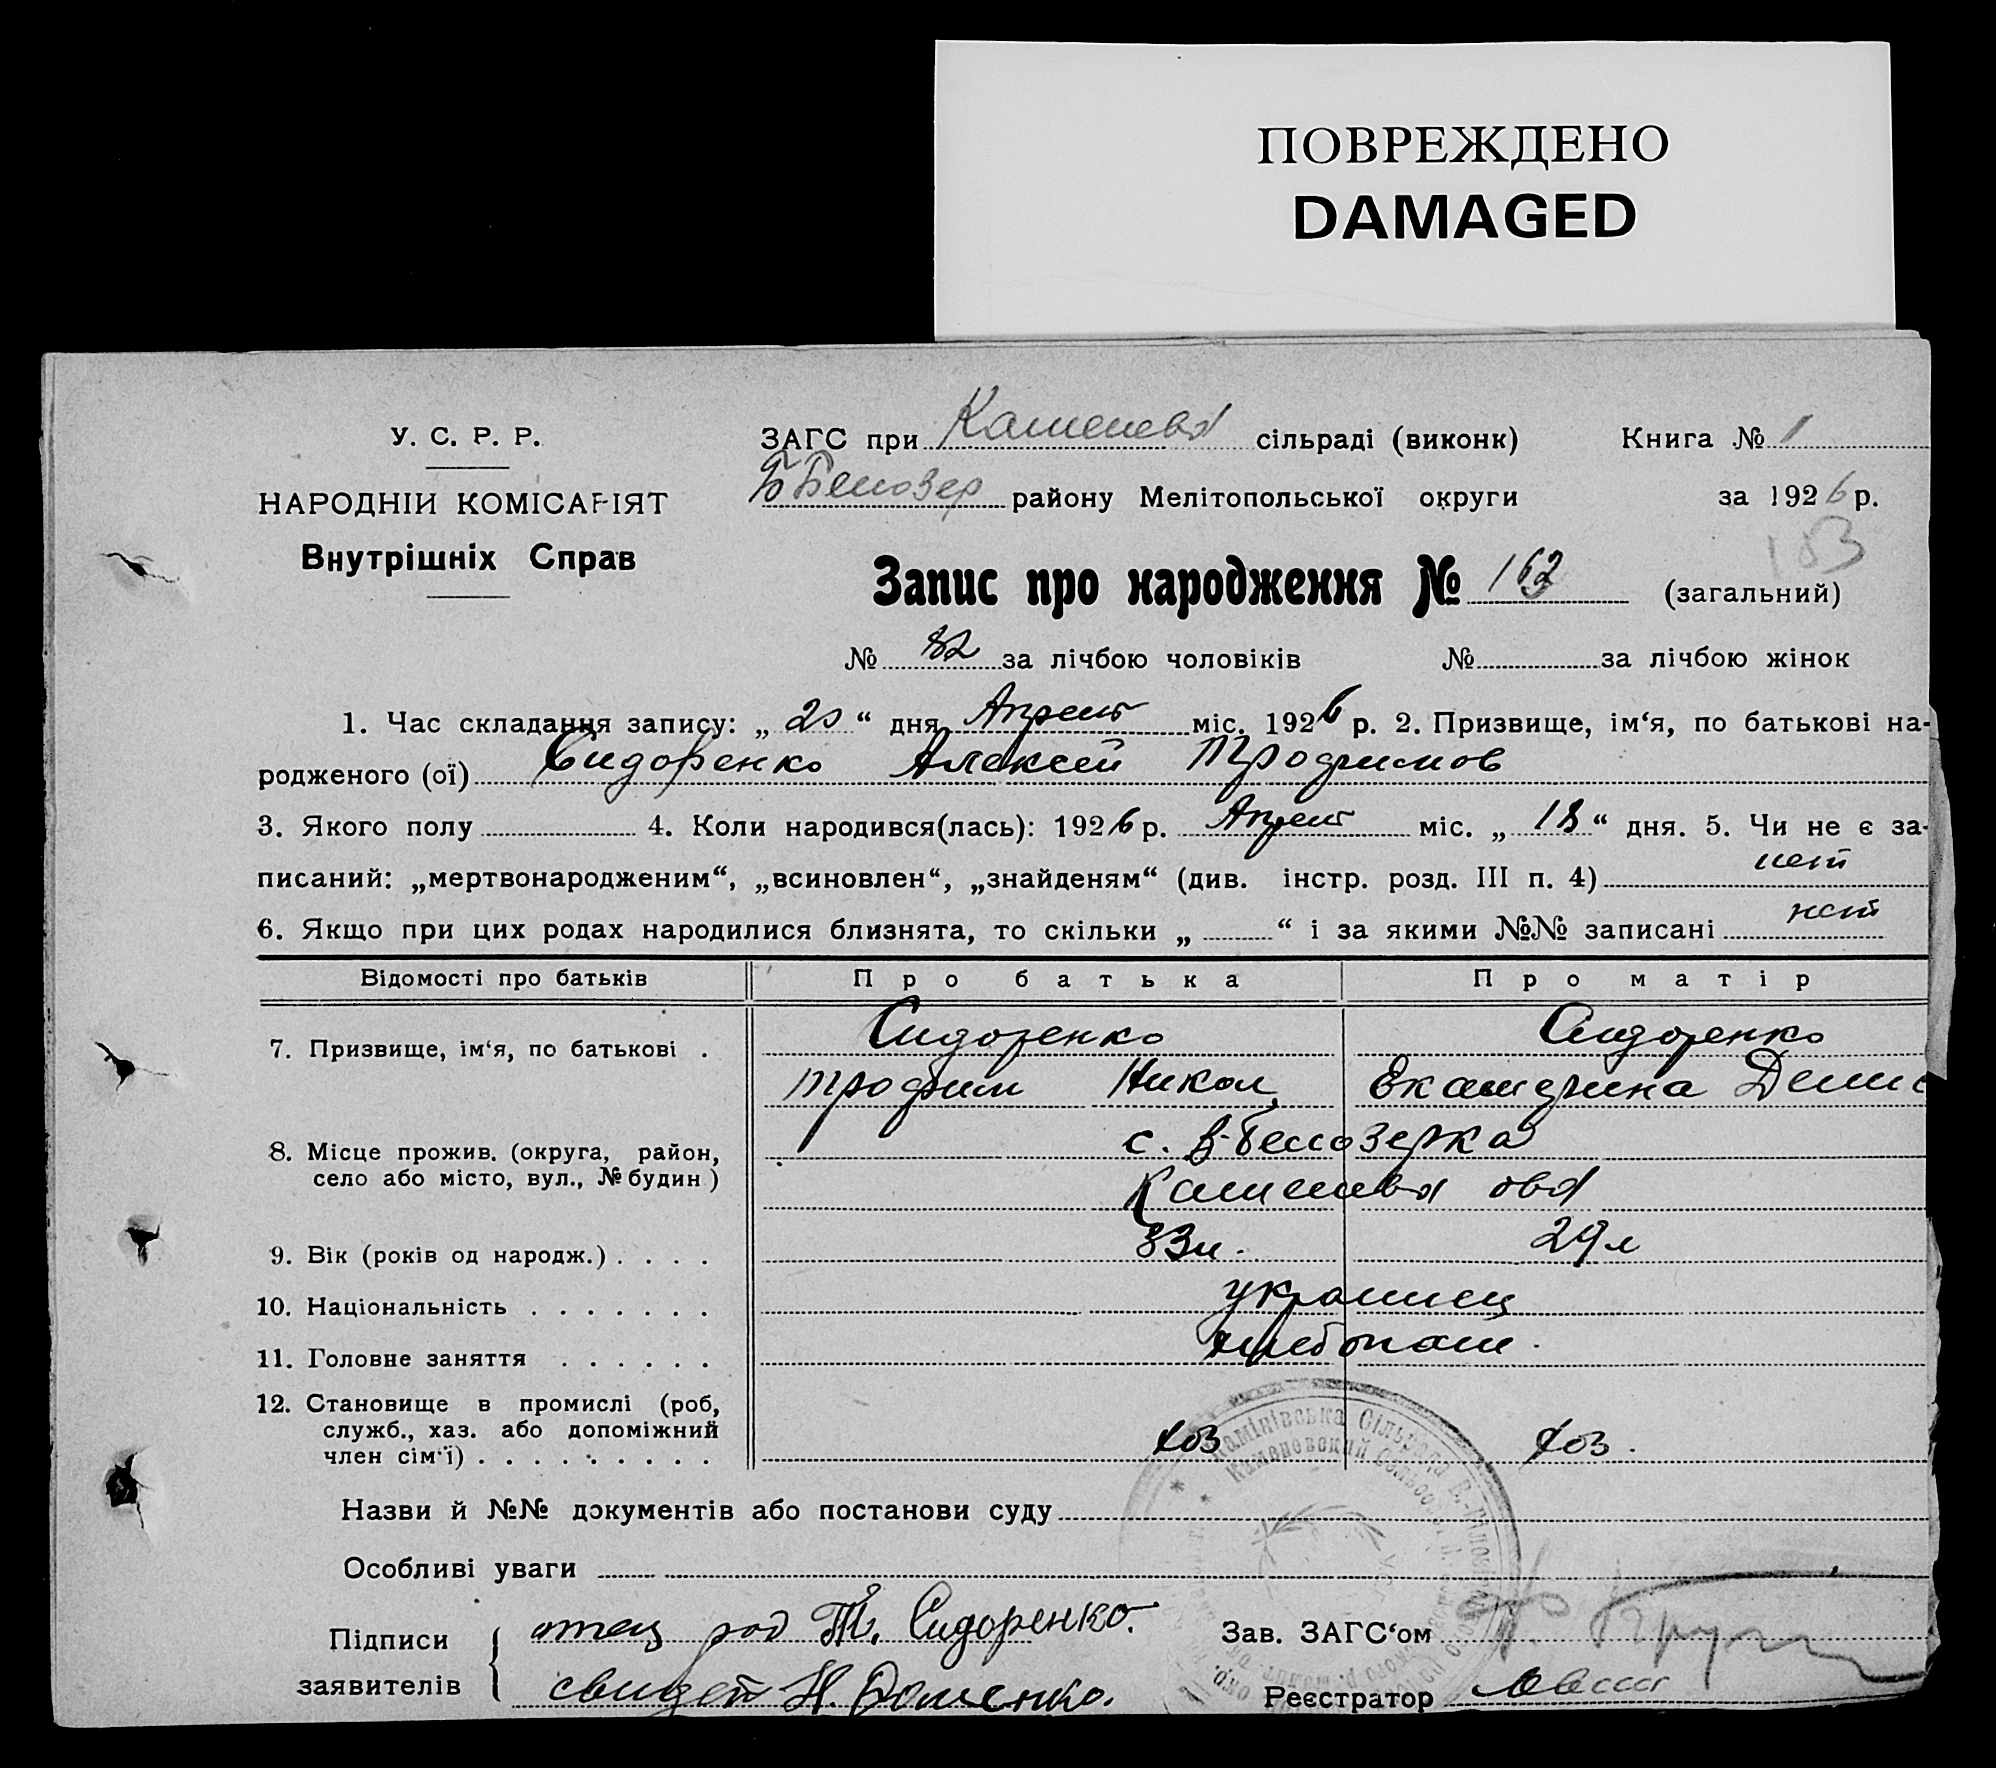 ПОВРЕЖДЕНО
DAMAGED
У. С. Р. Р.
НАРОДНІЙ КОМІСАРІЯТ
Внутрішніх Справ
ЗАГС при Каменева сільраді (виконк) Книга № 1
Б Белозер району Мелітопольської округи за 1926 р.
183
Запис про народження № 162 (загальний)
№ 82 за лічбою чоловіків № за лічбою жінок
1. Час складання запису: „ 20 “ дня Апреля міс. 1926 р. 2. Призвище, ім‘я, по батькові на-
родженого (ої) Сидоренко Алексей Трофимов
3. Якого полу 4. Коли народився(лась): 1926 р. Апреля міс. „ 18 “ дня. 5. Чи не є за-
писаний: „мертвонародженим“, „всиновлен“, „знайденям“ (див. інстр. розд. III п. 4) нет
6. Якщо при цих родах народилися близнята, то скільки „ “ і за якими №№ записані нет
Відомості про батьків Про батька Про матір
7. Призвище, ім‘я, по батькові . Сидоренко Сидоренко
Трофим Никол Екатерина Демис
8. Місце прожив. (округа, район, с. Б-белозерка
село або місто, вул., № будин) Каменева
9. Вік (років од народж.) . . . . 33 л. 29 л
10. Національність . . . . . . . украинец
11. Головне заняття . . . . . . хлебопаш.
12. Становище в промислі (роб,
служб., хаз. або допоміжний хоз хоз.
член сім‘ї) . . . . . . . . .
Камінівська Сільрада В.-Білозірського
Каменовский Сельсовет
Назви й №№ документів або постанови суду
Особливі уваги
Підписи отец Тр. Сидоренко.
заявителів свидет Н. Доменко.
Зав. ЗАГС‘ом
Реєстратор